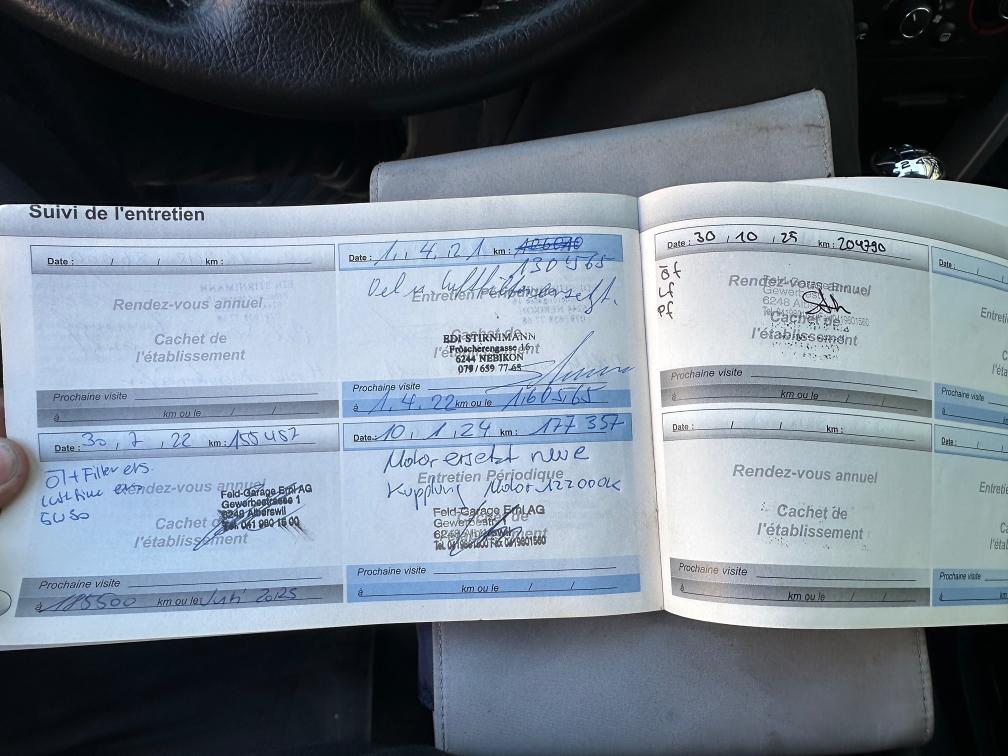 Suivi de l'entretien
Date : / / km :
Rendez-vous annuel
Cachet de
l'établissement
Prochaine visite
à km ou le / /
Date : 1. 4. 21 km :
130565
Oel u. Luftfilter ersetzt.
Entretien Périodique
Cachet de
l'établissement
EDI STIRNIMANN
Fröscherengasse 16
6244 NEBIKON
079 / 659 77 68
Prochaine visite
à 1. 4. 22 km ou le 160565
Date : 30, 7, 22 km : 155457
Öl + Filter ers.
5W30
Rendez-vous annuel
Cachet de
l'établissement
Feld-Garage Erni AG
Gewerbestrasse 1
6248 Alberswil
Tel. 041 980 15 00
Prochaine visite
à 185500 km ou le Juni 2025
Date : 10, 1, 24 km : 177 357
Motor ersetzt neue
Entretien Périodique
Kupplung Motor 122000k
Feld-Garage Erni AG
Gewerbestr.
6248 Alberswil
Prochaine visite
à km ou le / /
Date : 30, 10, 25 km : 204790
Öf
Lf
Pf
Rendez-vous annuel
Cachet de
l'établissement
Feld-Garage
6248 Alberswil
Prochaine visite
à km ou le / /
Date : / / km :
Rendez-vous annuel
Cachet de
l'établissement
Prochaine visite
à km ou le / /
Date :
Prochaine visite
à km
Date :
Prochaine visite
à km